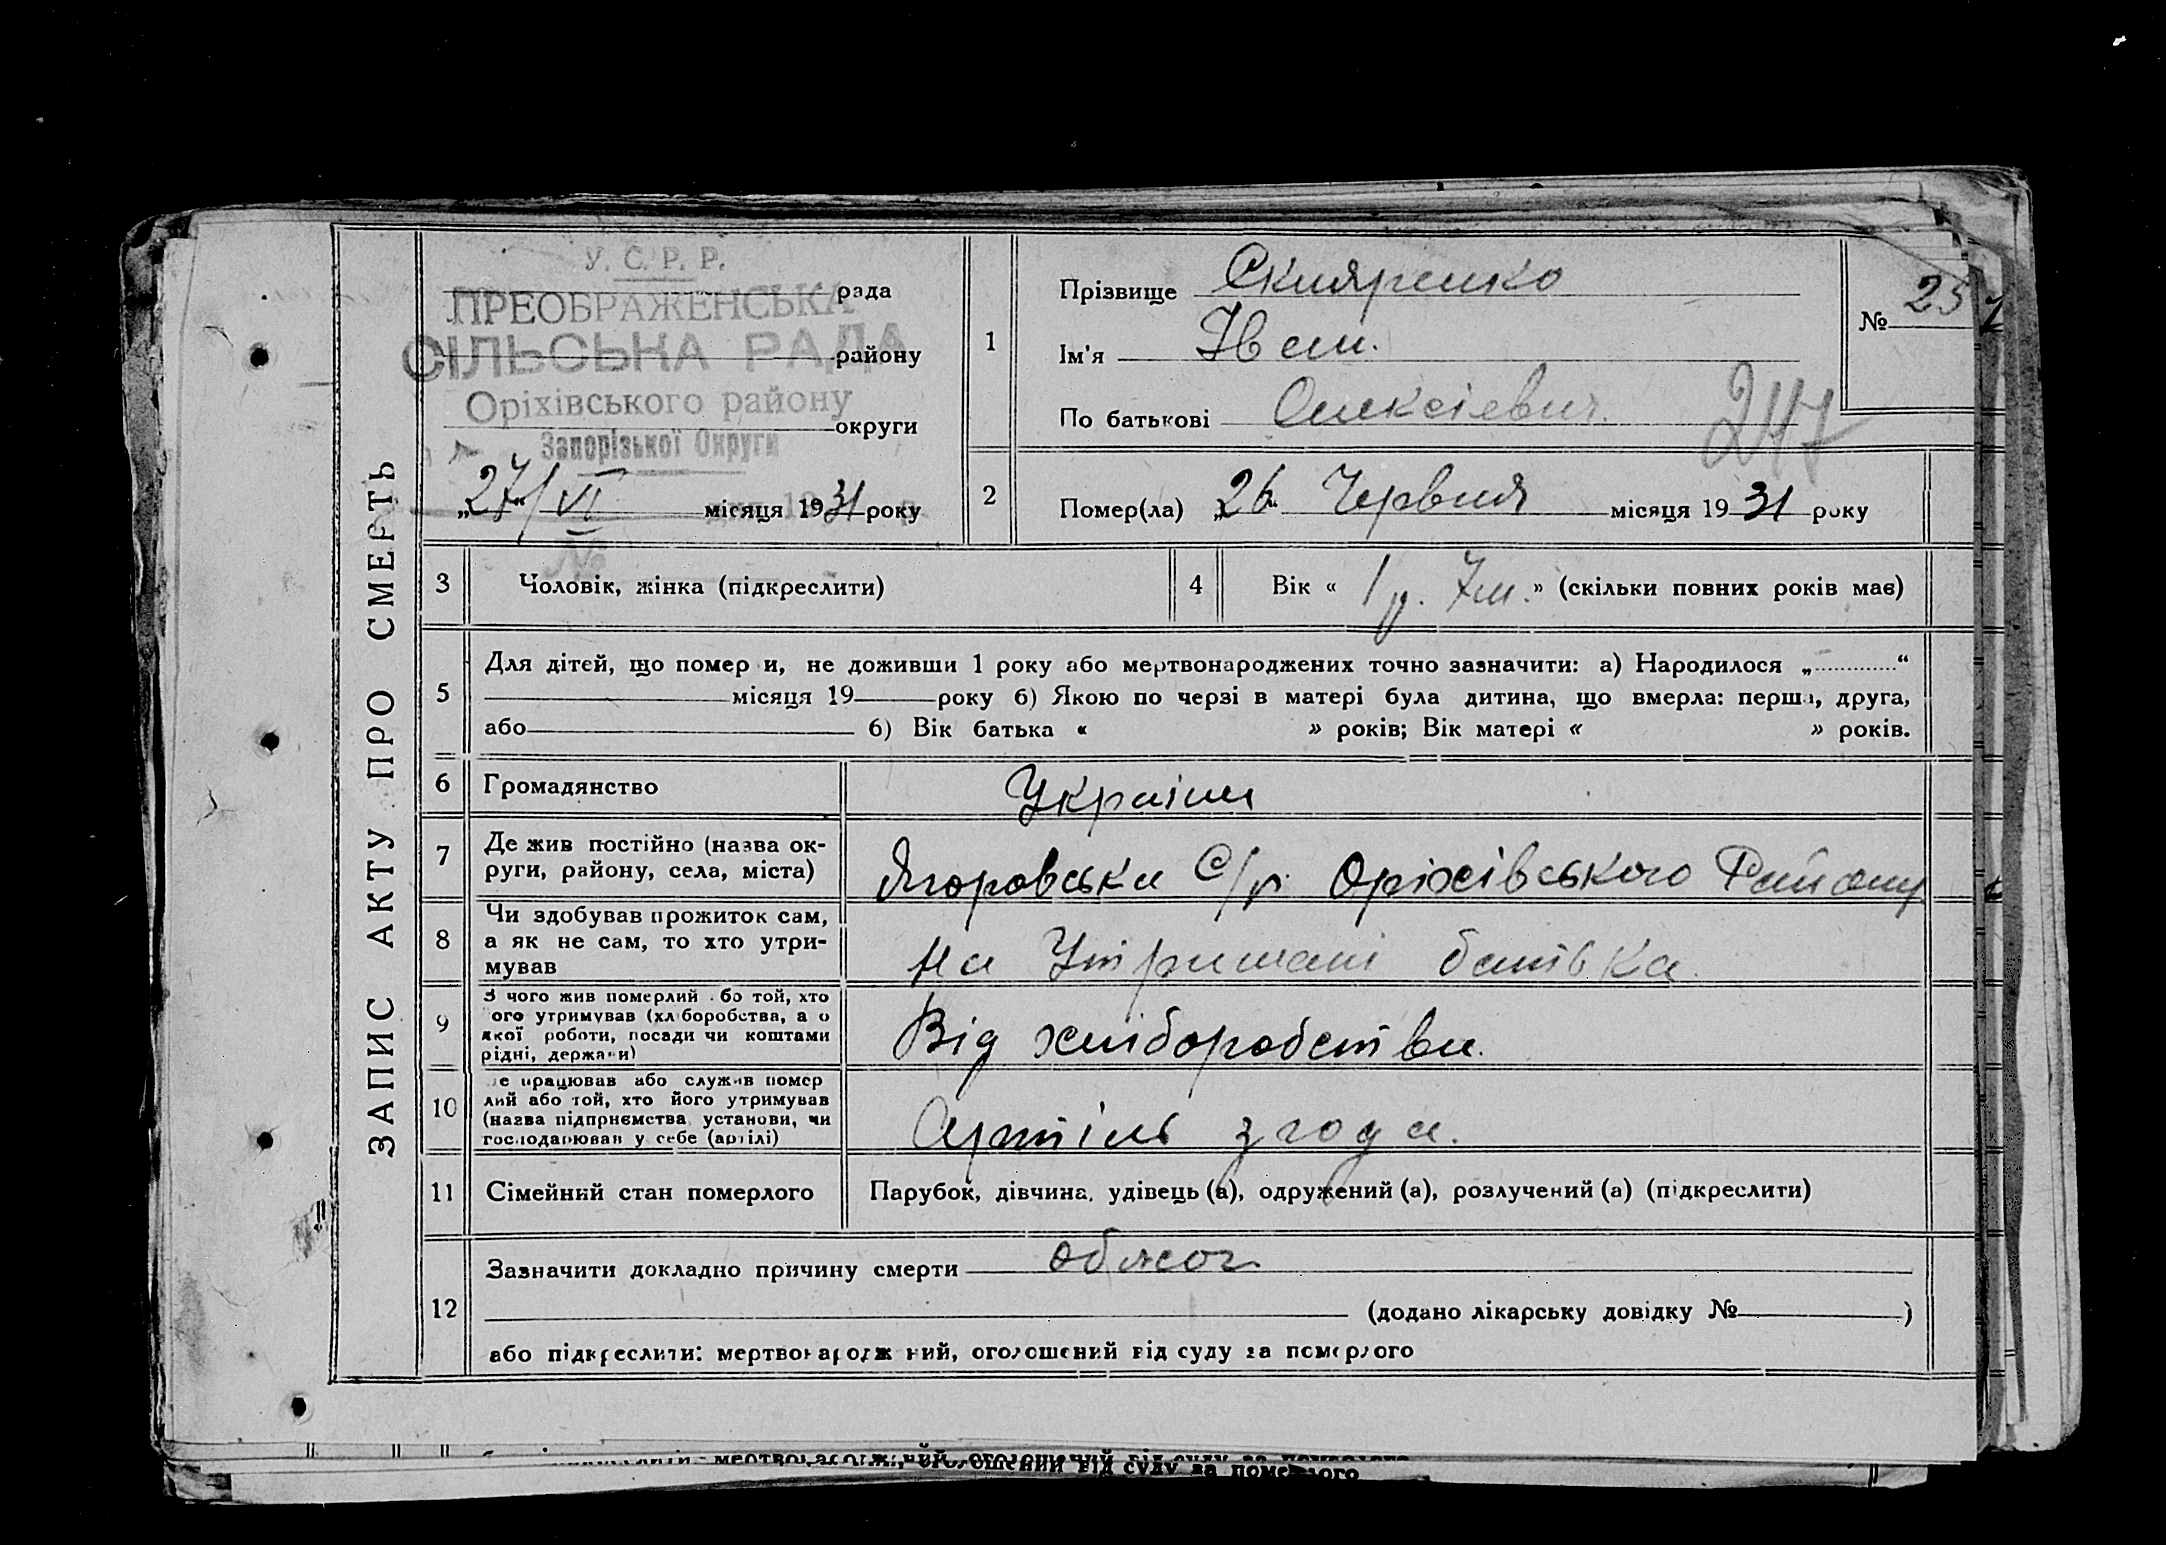 ЗАПИС АКТУ ПРО СМЕРТЬ
У. С. Р. Р.
рада
ПРЕОБРАЖЕНСЬКА
СІЛЬСЬКА РАДА
району
Оріхівського району
округи
Запорізької Округи
„27“/VI місяця 1931 року
№
1
Прізвище Скляренко
Ім'я Іван.
По батькові Олексієвич.
№ 25
247
2
Помер(ла) „26“ Червня місяця 1931 року
3
Чоловік, жінка (підкреслити)
4
Вік « 1 р. 7 м. » (скільки повних років має)
5
Для дітей, що помер и, не доживши 1 року або мертвонароджених точно зазначити: а) Народилося „ “
місяця 19 року б) Якою по черзі в матері була дитина, що вмерла: перша, друга,
або б) Вік батька « » років; Вік матері « » років.
6
Громадянство
Україн
7
Де жив постійно (назва ок-
руги, району, села, міста)
С/р. Оріхівського Району
8
Чи здобував прожиток сам,
а як не сам, то хто утри-
мував
на Утримані батька.
9
З чого жив померлий або той, хто
ого утримував (хліборобства, а о
якої роботи, посади чи коштами
рідні, держави)
Від хліборобства.
10
е працював або служив помер
лий або той, хто його утримував
(назва підприємства, установи, чи
господарював у себе (артілі)
Артіль згода.
11
Сімейний стан померлого
Парубок, дівчина, удівець (а), одружений (а), розлучений (а) (підкреслити)
12
Зазначити докладно причину смерти обжог
(додано лікарську довідку № )
або підкреслити: мертвонароджений, оголошений від суду за померлого
мертвонароджений, оголошений від суду за померлого
оголошений від суду за померлого